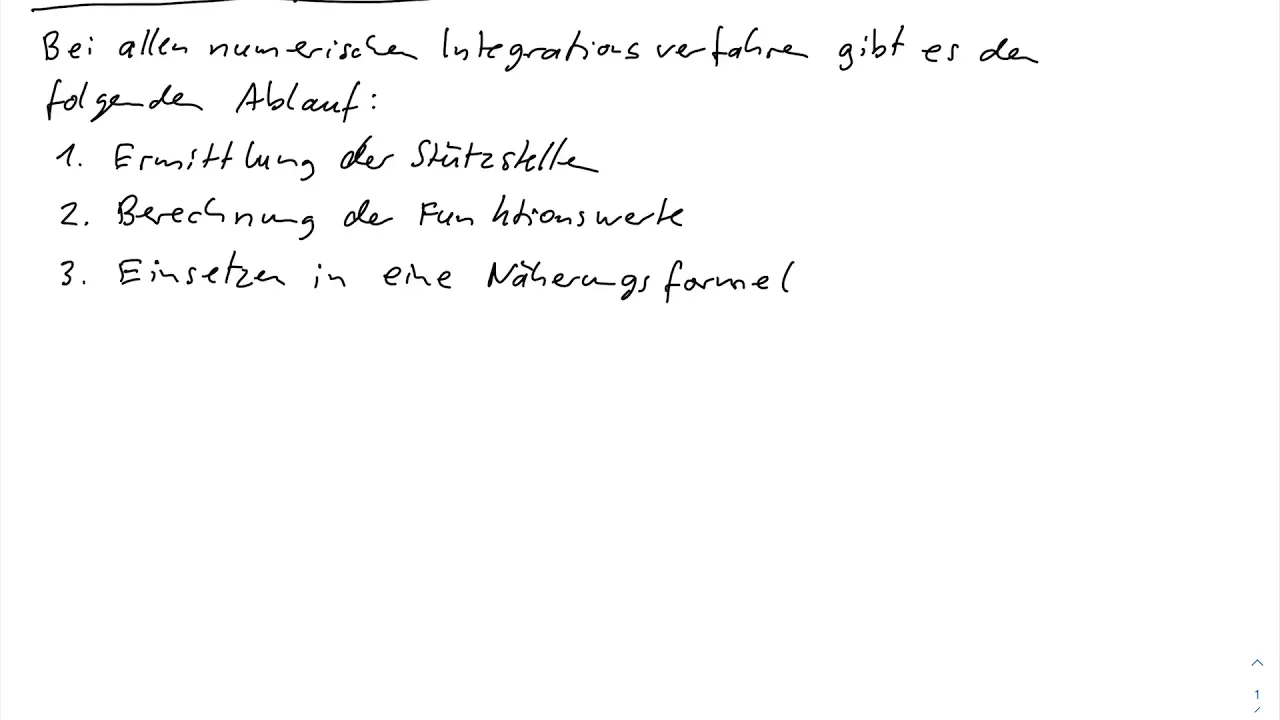 Bei allen numerischen Integrationsverfahren gibt es den
folgenden Ablauf:
1. Ermittlung der Stützstellen
2. Berechnung der Funktionswerte
3. Einsetzen in eine Näherungsformel
1